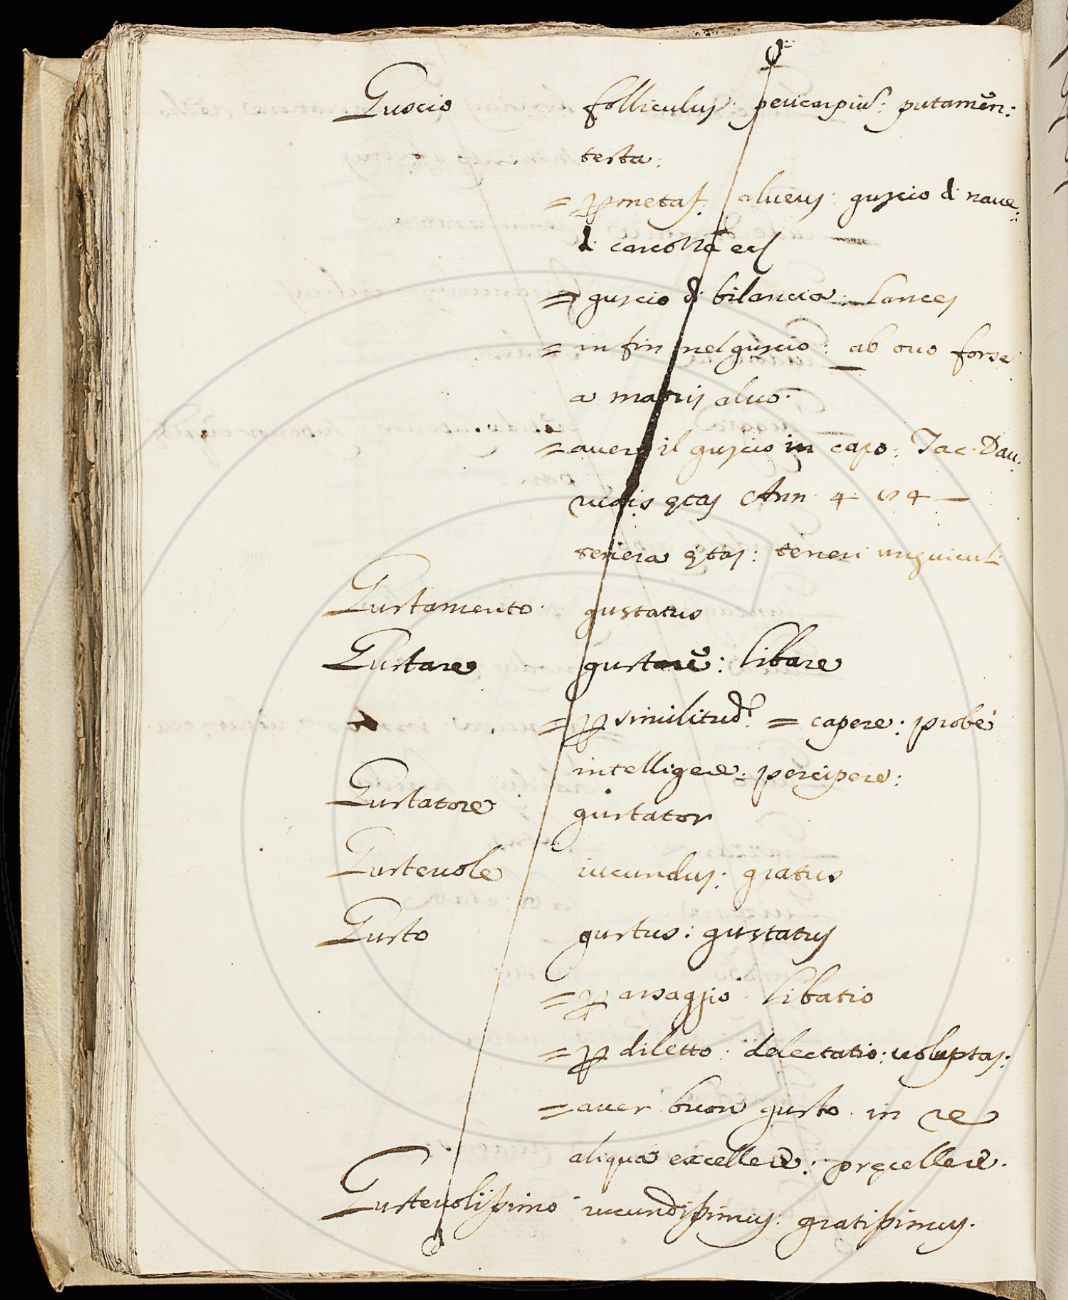 Guscio folliculus: pericarpiũ: putamẽn:
testa:
= p metaf: alueus: guscio di naue:
di carozza
= guscio di bilancia: Lances
= in fin nel guscio: ab ouo forse
a matris aluo.
= auer il guscio in capo: Tac. Dau.
Ann. 4
tenera ętas: teneri unguiculi
Gustamento. gustatus
Gustare gustarẽ: libare
= p similitud: = capere: probè
intelligere: percipere:
Gustatore gustator
Gusteuole iucundus: gratus
Gusto gustus: gustatus
= p assaggio libatio
= p diletto: delectatio: uoluptas:
= auer buon gusto in re
aliqua excellere: pręcellere.
Gusteuolissimo iucundissimus: gratissimus.